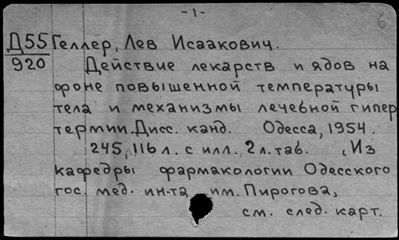 -1-
6
Д55 Геллер, Лев Исаакович.
920 Действие лекарств и ядов на
фоне повышенной температуры
тела и механизмы лечебной гипер
термии. Дисс. канд. Одесса, 1954.
245, 116 л. с илл., 2 л. таб. (Из
кафедры фармакологии Одесского
гос. мед. ин-та им. Пирогова,
см. след. карт.